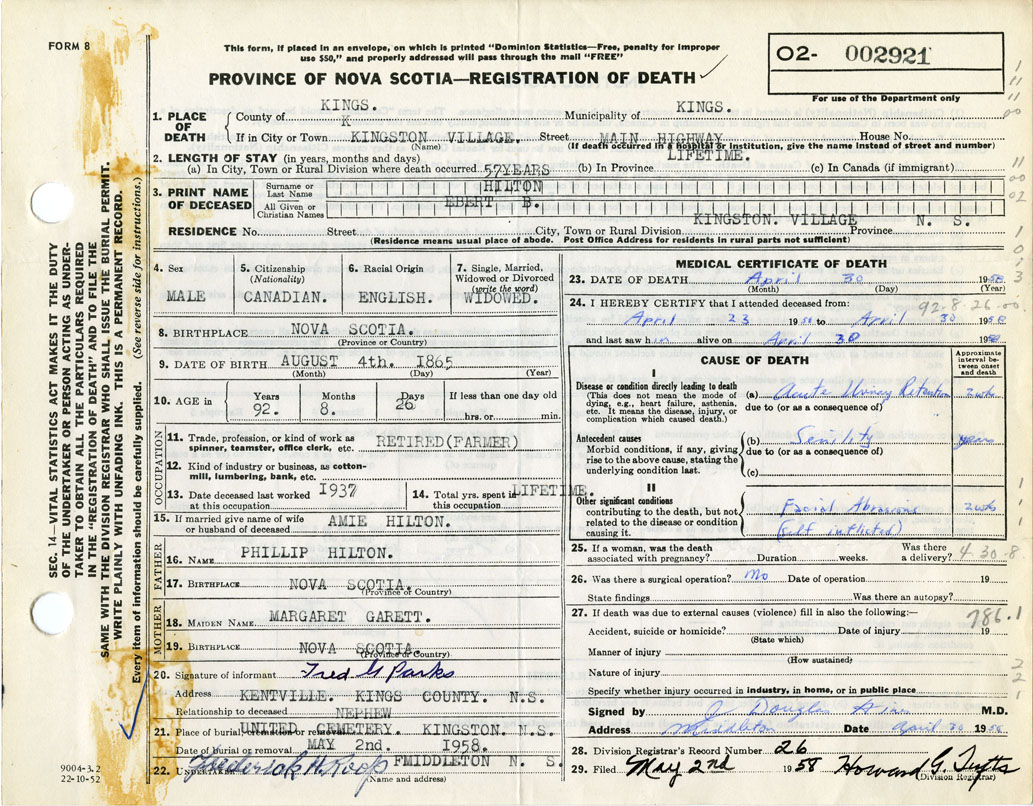 FORM 8
This form, if placed in an envelope, on which is printed "Dominion Statistics—Free, penalty for improper
use $50," and properly addressed will pass through the mail "FREE"
PROVINCE OF NOVA SCOTIA—REGISTRATION OF DEATH
O2- 002921
For use of the Department only
1. PLACE OF DEATH
County of KINGS. K Municipality of KINGS.
If in City or Town KINGSTON VILLAGE. Street MAIN HIGHWAY House No.
(Name) (If death occurred in a hospital or institution, give the name instead of street and number)
2. LENGTH OF STAY (in years, months and days)
(a) In City, Town or Rural Division where death occurred 57YEARS (b) In Province LIFETIME. (c) In Canada (if immigrant)
3. PRINT NAME OF DECEASED
Surname or Last Name HILTON
All Given or Christian Names EBERT B.
RESIDENCE No. Street City, Town or Rural Division KINGSTON. VILLAGE Province N. S.
(Residence means usual place of abode. Post Office Address for residents in rural parts not sufficient)
SEC. 14—VITAL STATISTICS ACT MAKES IT THE DUTY
OF THE UNDERTAKER OR PERSON ACTING AS UNDER-
TAKER TO OBTAIN ALL THE PARTICULARS REQUIRED
IN THE "REGISTRATION OF DEATH" AND TO FILE THE
SAME WITH THE DIVISION REGISTRAR WHO SHALL ISSUE THE BURIAL PERMIT.
WRITE PLAINLY WITH UNFADING INK. THIS IS A PERMANENT RECORD.
Every item of information should be carefully supplied. (See reverse side for instructions.)
4. Sex MALE
5. Citizenship (Nationality) CANADIAN.
6. Racial Origin ENGLISH.
7. Single, Married, Widowed or Divorced (write the word) WIDOWED.
8. BIRTHPLACE NOVA SCOTIA.
(Province or Country)
9. DATE OF BIRTH AUGUST 4th. 1865
(Month) (Day) (Year)
10. AGE in Years 92. Months 8. Days 26 If less than one day old hrs. or min.
OCCUPATION
11. Trade, profession, or kind of work as spinner, teamster, office clerk, etc. RETIRED(FARMER)
12. Kind of industry or business, as cotton-mill, lumbering, bank, etc.
13. Date deceased last worked at this occupation 1937
14. Total yrs. spent in this occupation LIFETIME.
15. If married give name of wife or husband of deceased AMIE HILTON.
FATHER
16. NAME PHILLIP HILTON.
17. BIRTHPLACE NOVA SCOTIA.
(Province or Country)
MOTHER
18. MAIDEN NAME MARGARET GARETT.
19. BIRTHPLACE NOVA SCOTIA.
(Province or Country)
20. Signature of informant Fred G Parks
Address KENTVILLE. KINGS COUNTY. N.S.
Relationship to deceased NEPHEW
21. Place of burial, cremation or removal UNITED CEMETERY. KINGSTON. N.S.
Date of burial or removal MAY 2nd. 1958.
22. UNDERTAKER Frederick A. Roop FMIDDLETON N. S.
(Name and address)
9004-3.2
22-10-52
MEDICAL CERTIFICATE OF DEATH
23. DATE OF DEATH April 30 1958
(Month) (Day) (Year)
24. I HEREBY CERTIFY that I attended deceased from: 92-8-26-00
April 23 1958 to April 30 1958
and last saw him alive on April 30 1958
CAUSE OF DEATH
Approximate interval between onset and death
I
Disease or condition directly leading to death
(This does not mean the mode of dying, e.g., heart failure, asthenia, etc. It means the disease, injury, or complication which caused death.)
(a) Acute Urinary Retention 2 wks
due to (or as a consequence of)
Antecedent causes
Morbid conditions, if any, giving rise to the above cause, stating the underlying condition last.
(b) Senility years
due to (or as a consequence of)
(c)
II
Other significant conditions contributing to the death, but not related to the disease or condition causing it.
Facial Abrasions 2 wks
(self inflicted)
25. If a woman, was the death associated with pregnancy? Duration weeks. Was there a delivery? 4-30-8
26. Was there a surgical operation? No Date of operation 19
State findings Was there an autopsy?
27. If death was due to external causes (violence) fill in also the following:— 786.1
Accident, suicide or homicide? Date of injury 19
(State which)
Manner of injury
(How sustained)
Nature of injury
Specify whether injury occurred in industry, in home, or in public place
Signed by J Douglas M.D.
Address Middleton Date April 30 1958
28. Division Registrar's Record Number 26
29. Filed May 2nd 1958 Howard G. Tufts
(Division Registrar)